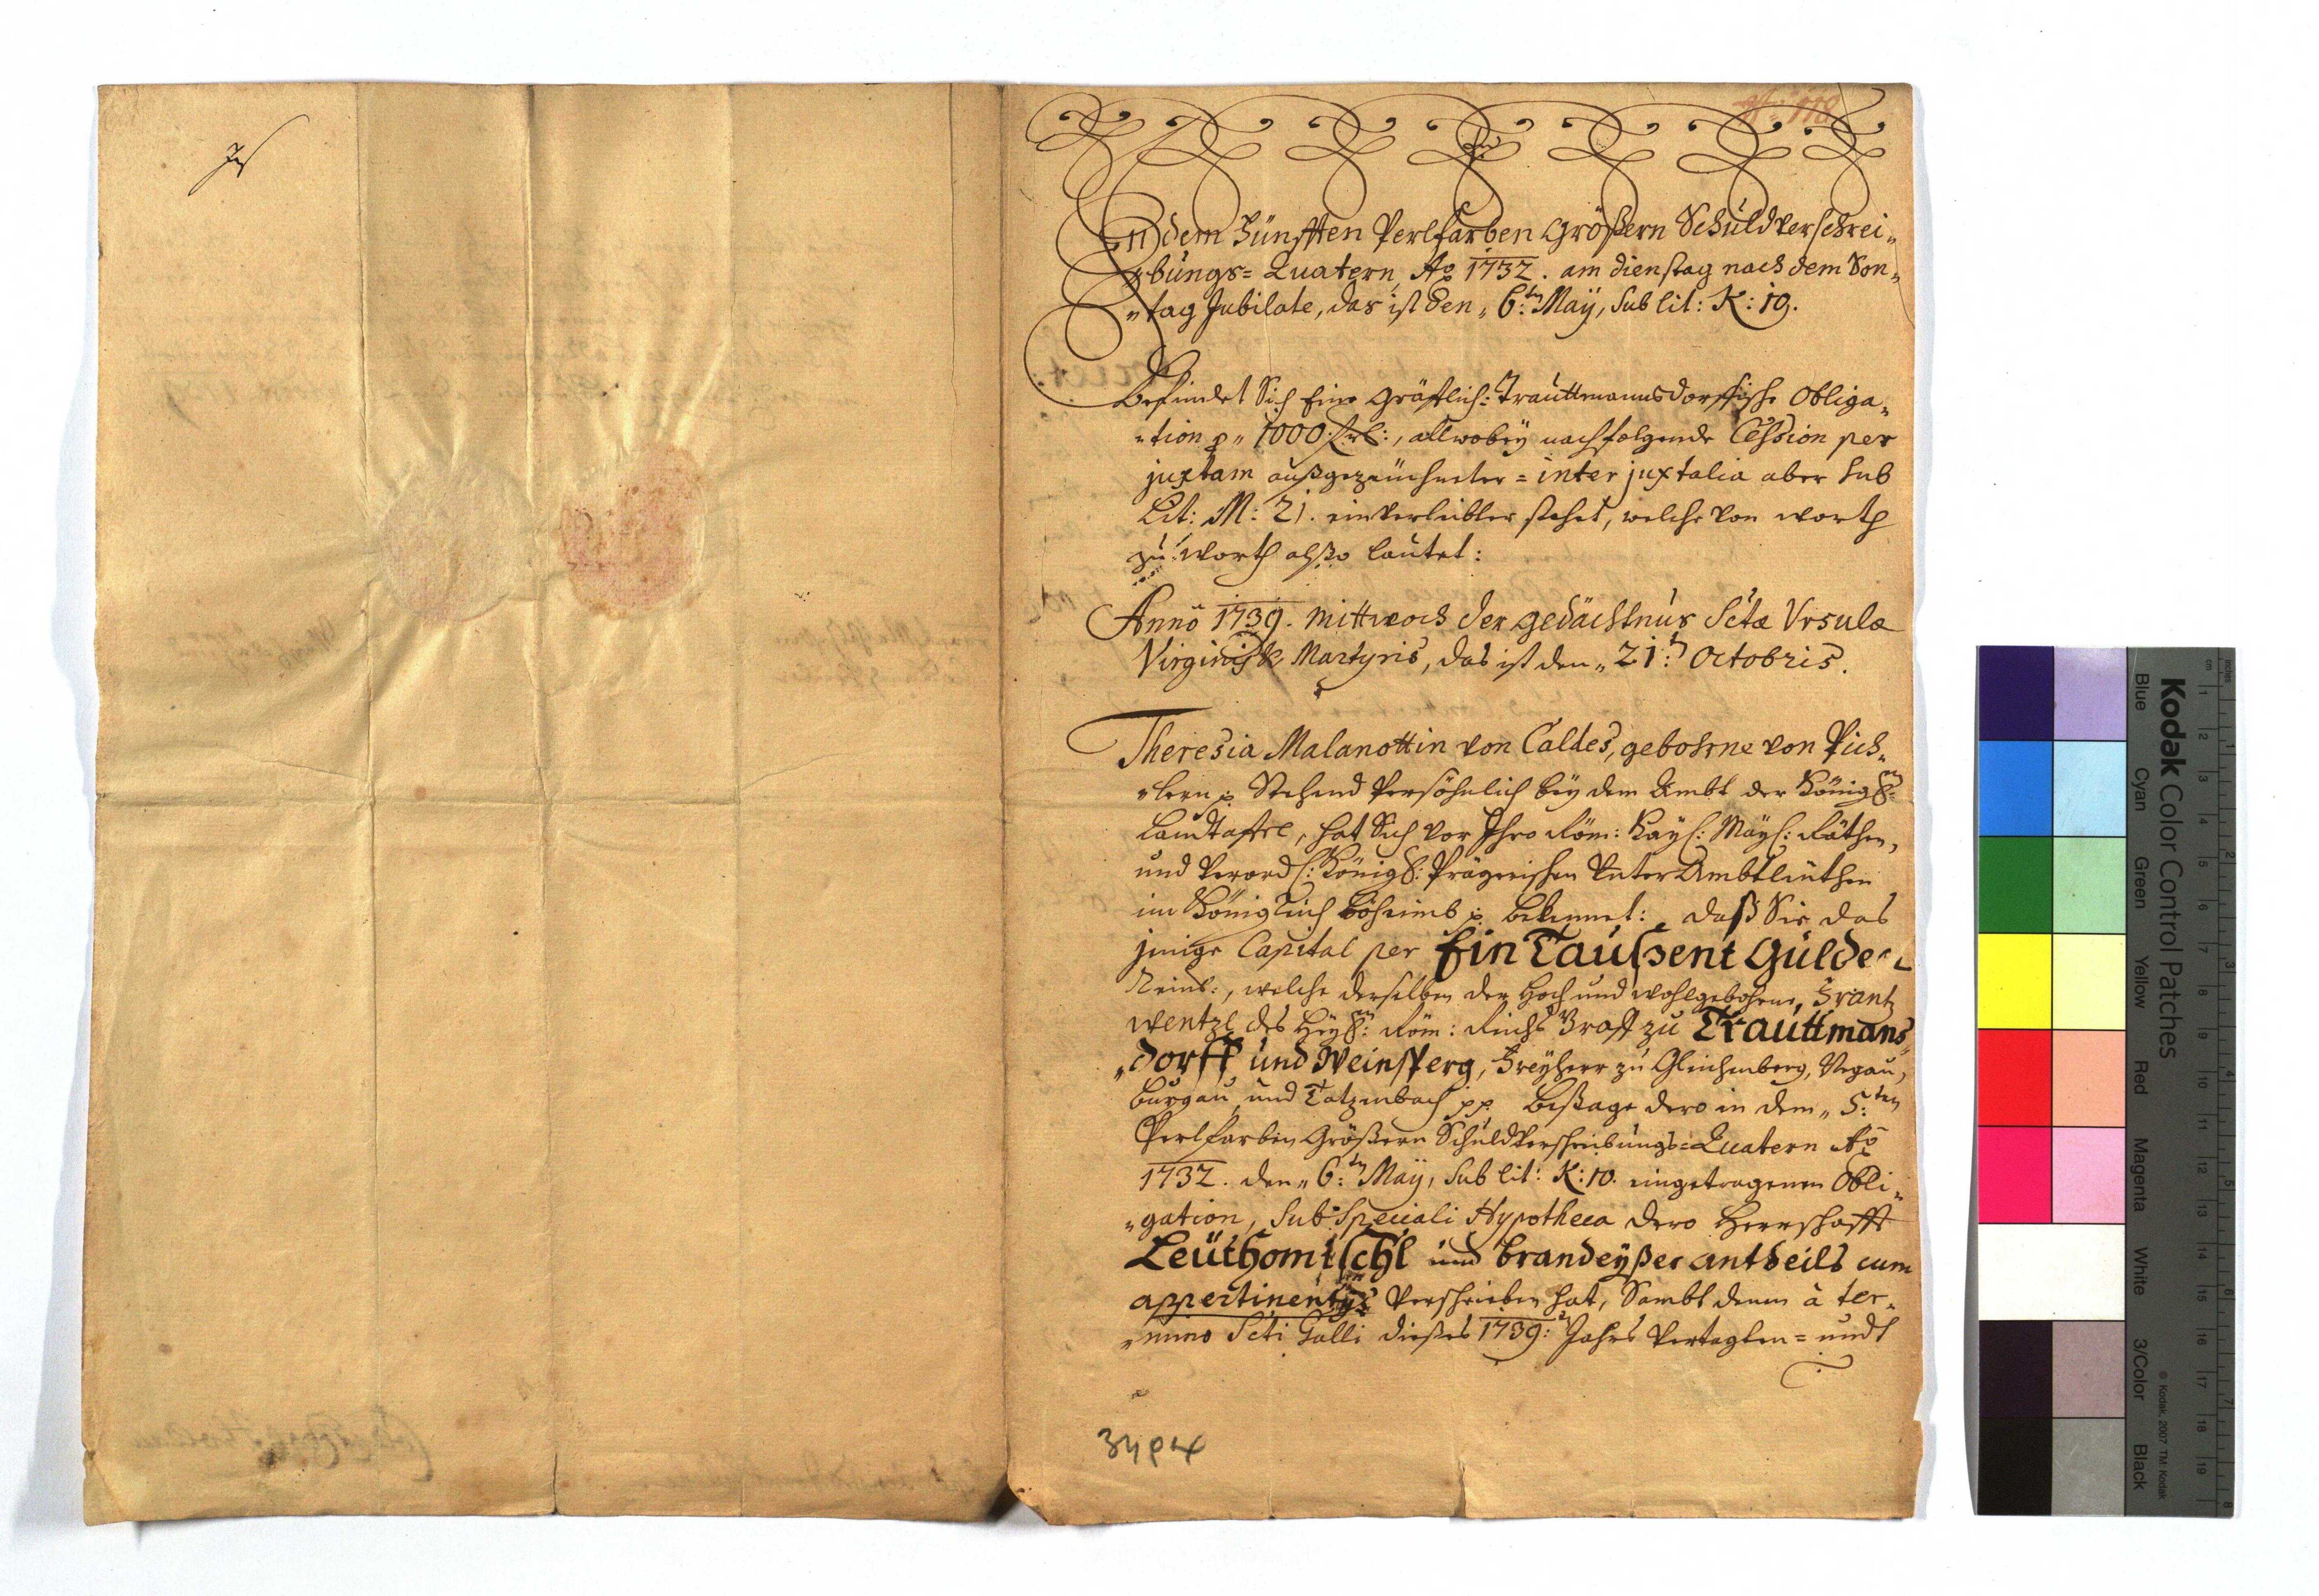 In dem Fünfften Perlfarben Größern Schüldverschrei„
„büngs= Quatern, Aõ 1732. am dienstag nach dem Son„
„tag Jubilate, das ist den „6:ten Maÿ, sub lit: K: 19.
Befindet Sich Eine Gräfflich: Trauttmannsdorffische Obliga„
„tion p „1000 f:, allwobeÿ nachfolgende Cession per
juxtam außgezeichneter = inter juxtalia aber sub
Lit: M: 21. einverleibter stehet, welche von worth
zu worth alßo lautet:
Anno 1739. Mittwoch der gedächtnüs Sctæ Ursulæ
Virginis & Martyris, das ist den „21:t Octobris.
Theresia Malanottin von Caldes, gebohrne von Pich„
„lern p: Stehend Persöhnlich beÿ dem Ambt der Königl:
Landtaffel, hat Sich vor Ihro Röm: Kaÿl: Maÿl: Räthen,
und Verordl: Königl: Pragerischen Unter Ambtleuthen
im Königreich Böheimb p: bekennet: daß Sie das
jenige Capital per Ein Taußent Gülden
Reinl:, welche derselben der Hoch und wohlgebohrne, Frantz
Wentzl des Heÿl: Röm: Reichs Graff zu Trauttmans„
„dorff und Weinsperg, Freÿherr zu Gleichenberg, Negau,
Burgau, und Tatzenbach pp: beßage dero in dem „5:ten
Perlfarben Größern Schuldverschreibungs=Quatern Aõ
1732. den „6:ten Maÿ, sub lit: K: 10. eingetragenen Obli„
„gation, sub Speciali Hypotheca dero Herrschafft
Leüthomischl und Brandeÿßer antheils cum
appertinentÿs verschrieben hat, Sambt denen à ter„
„mino Scti Galli dießes 1739: Jahrs Vertagten = undt
Kodak Color Control Patches
Blue Cyan Green Yellow Red Magenta White 3/Color Black
© Kodak, 2007 TM: Kodak